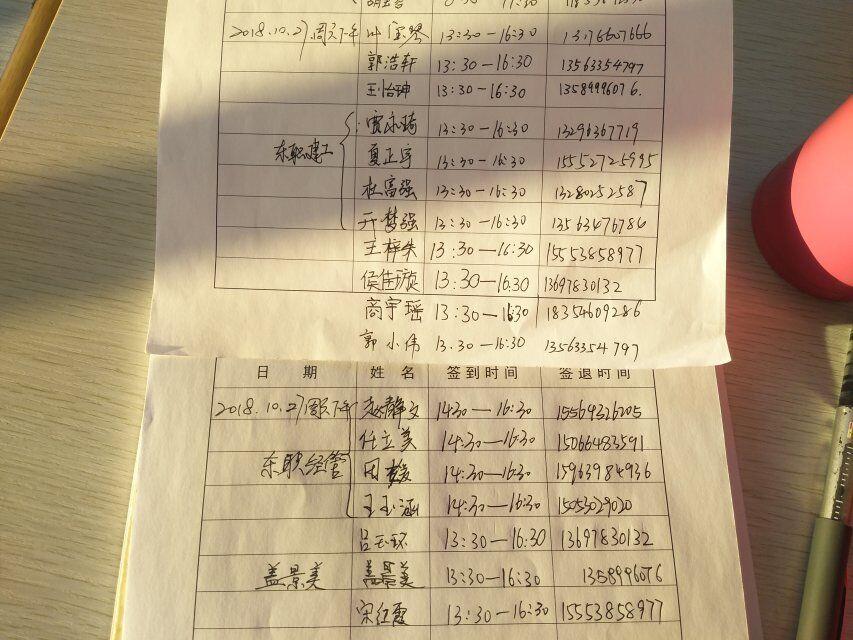 2018.10.27周六下午 叶宝琴 13:30—16:30 13176607666
郭浩轩 13:30—16:30 13563354797
王怡珅 13:30—16:30 13589996076.
13:30—16:30 13296367719
东职建工 夏正宇 13:30—16:30 15552725995
杜富强 13:30—16:30 13280252587
亓梦强 13:30—16:30 13563476786
王梓朱 13:30—16:30 15553858977
侯佳璇 13:30—16:30 13697830132
商宇瑶 13:30—16:30 18354609286
郭小伟 13:30—16:30 13563354797
日期 姓名 签到时间 签退时间
2018.10.27周六下午 赵静文 14:30—16:30 15569326205
任立美 14:30—16:30 15066483591
东职经管 田梅 14:30—16:30 15963984936
王玉涵 14:30—16:30 15053029020
吕玉环 13:30—16:30 13697830132
盖景美 盖景美 13:30—16:30 1358996076
宋红霞 13:30—16:30 15553858977